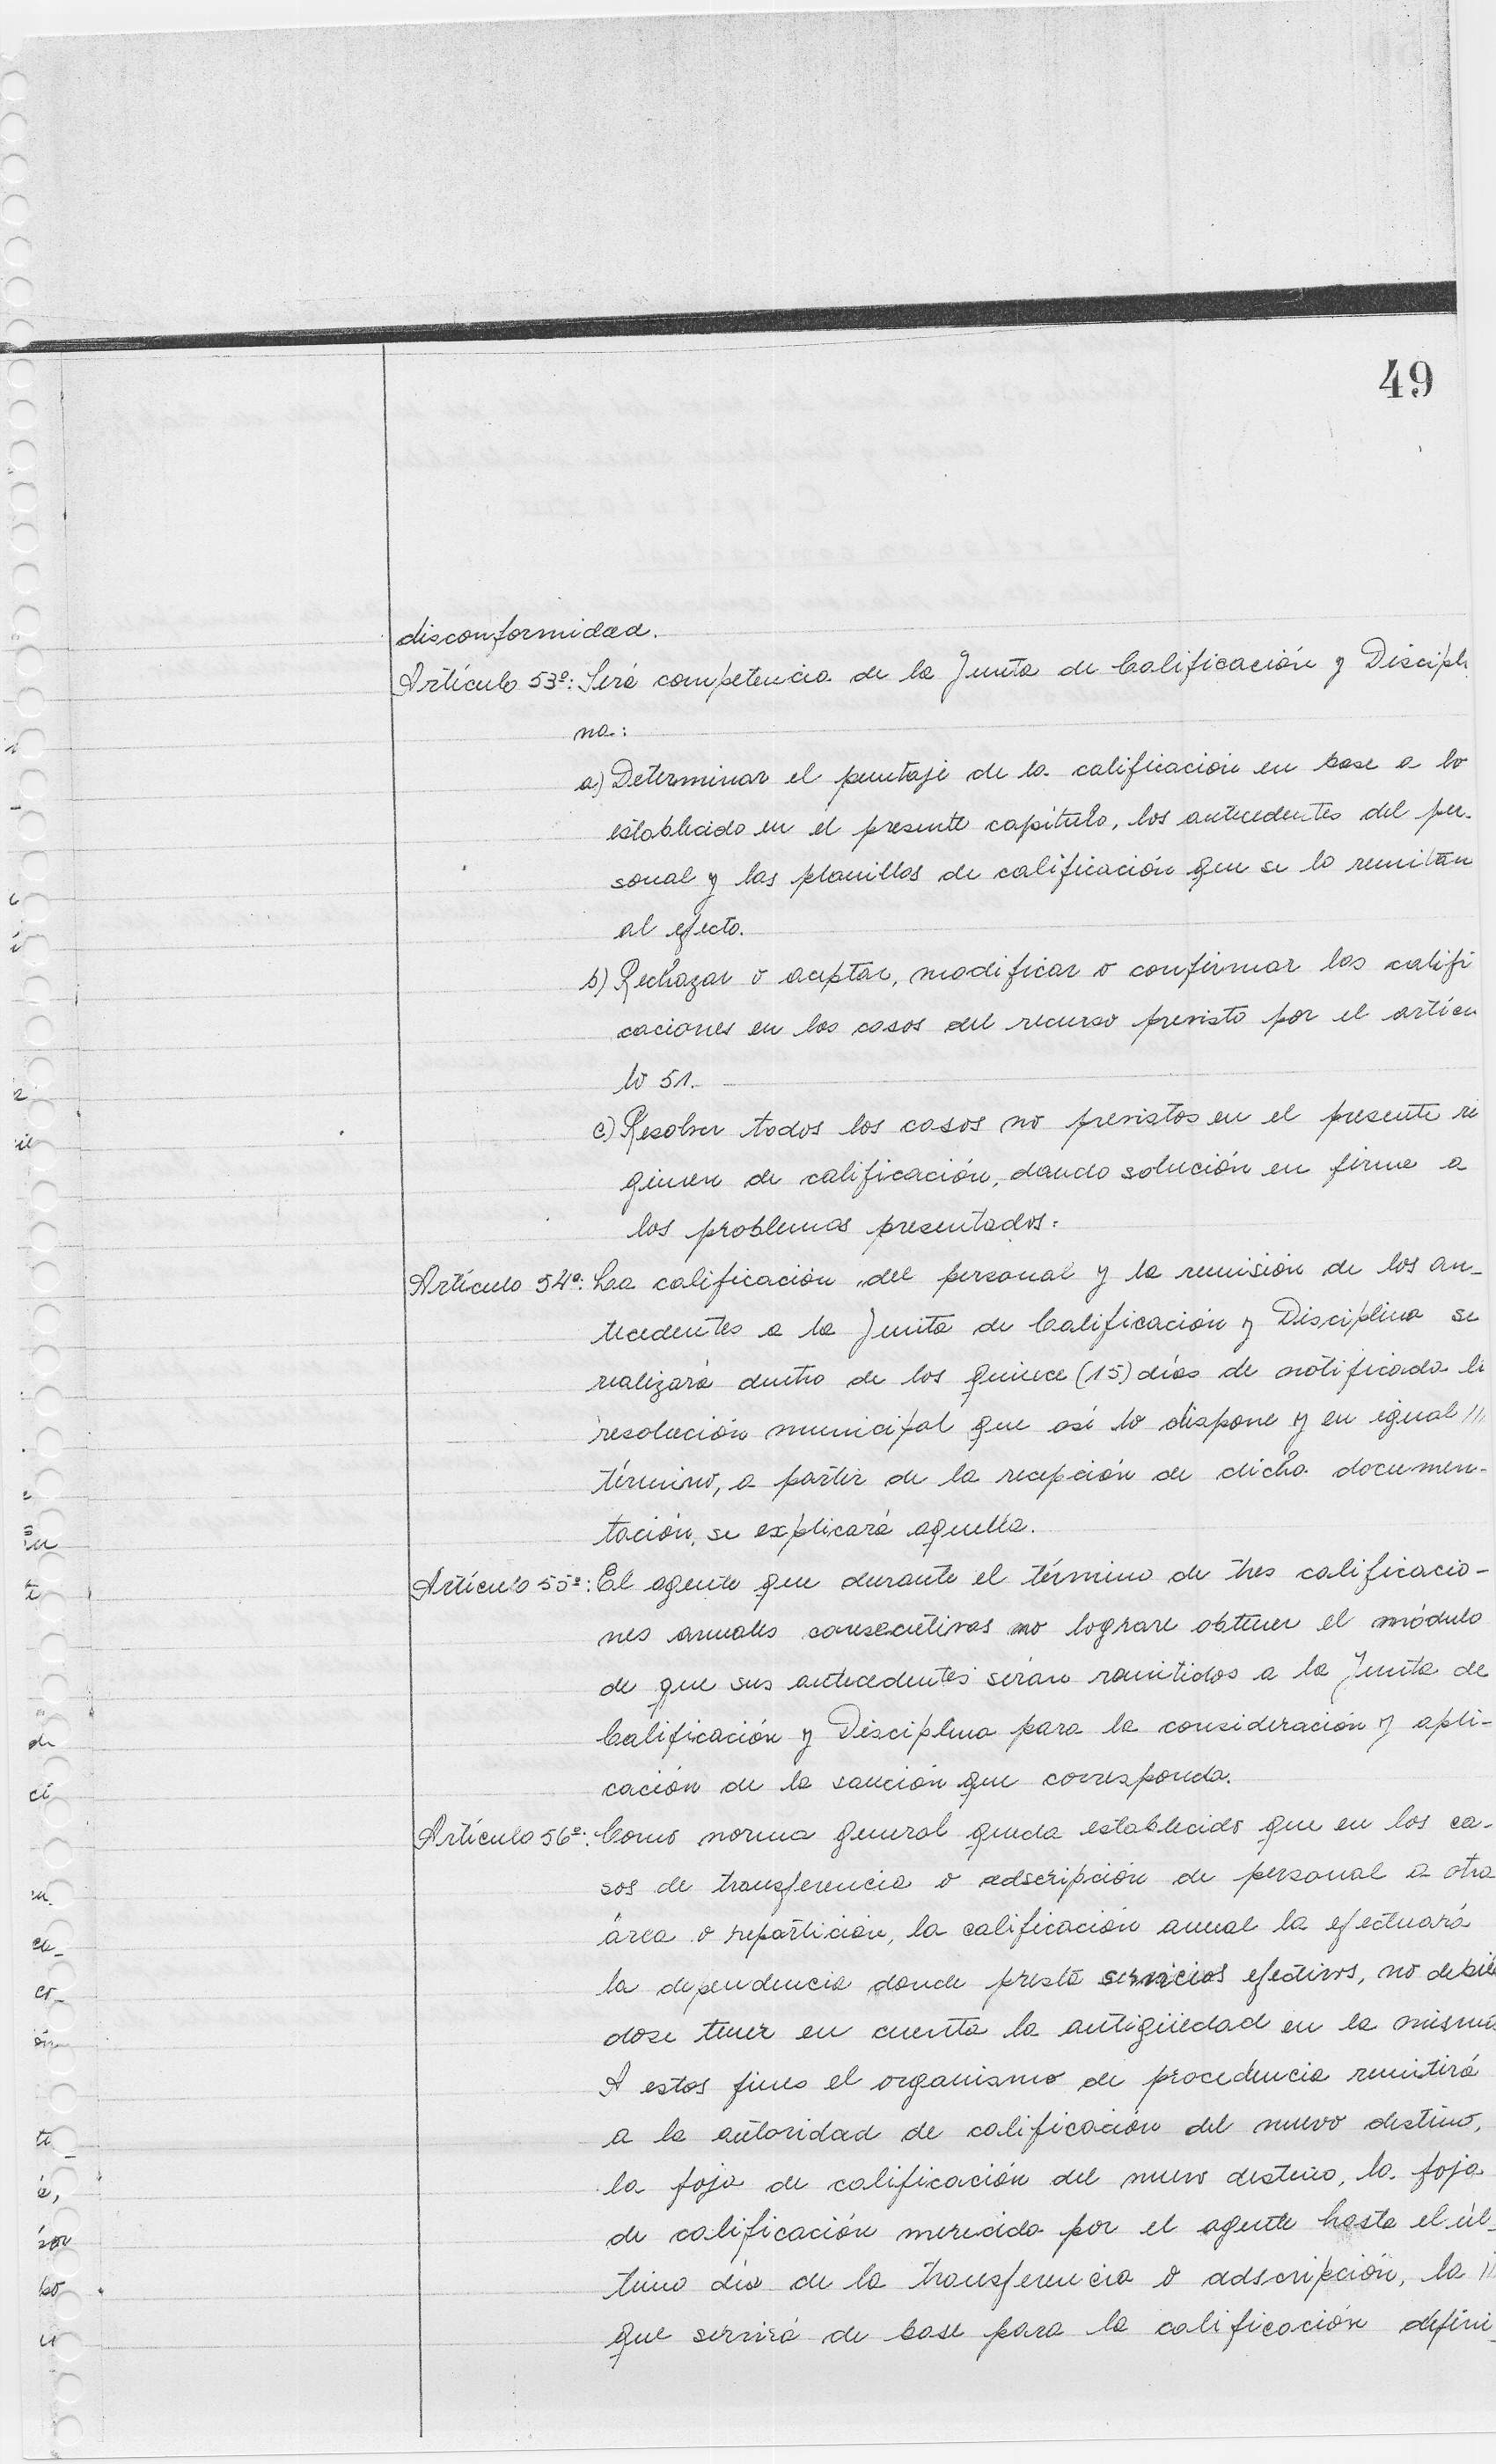 49
disconformidad.
Artículo 53º: Será competencia de la Junta de Calificación y Discipli
na:
a) Determinar el puntaje de la calificación en base a lo
establecido en el presente capítulo, los antecedentes del per-
sonal y las planillas de calificación que se lo remitan
al efecto.
b) Rechazar o aceptar, modificar o confirmar las califi
caciones en los casos del recurso previsto por el artícu
lo 51.-
c) Resolver todos los casos no previstos en el presente ré
gimen de calificación, dando solución en firme a
los problemas presentados.
Artículo 54º: La calificación del personal y la remisión de los an-
tecedentes a la Junta de Calificación y Disciplina se
realizará dentro de los quince (15) días de notificada la
resolución municipal que así lo dispone y en igual ///
término, a partir de la recepción de dicha documen-
tación, se explicará aquella.
Artículo 55º: El agente que durante el término de tres calificacio-
nes anuales consecutivas no lograre obtener el módulo
de que sus antecedentes serán remitidos a la Junta de
Calificación y Disciplina para la consideración y apli-
cación de la sanción que corresponda.
Artículo 56º: Como norma general queda establecido que en los ca-
sos de transferencia o adscripción de personal a otra
área o repartición, la calificación anual la efectuará
la dependencia donde presta servicios efectivos, no debién
dose tener en cuenta la antigüedad en la misma
A estos fines el organismo de procedencia remitirá
a la autoridad de calificación del nuevo destino,
la foja de calificación del nuevo destino, la foja
de calificación merecida por el agente hasta el úl-
timo día de la transferencia o adscripción, la //
que servirá de base para la calificación defini-